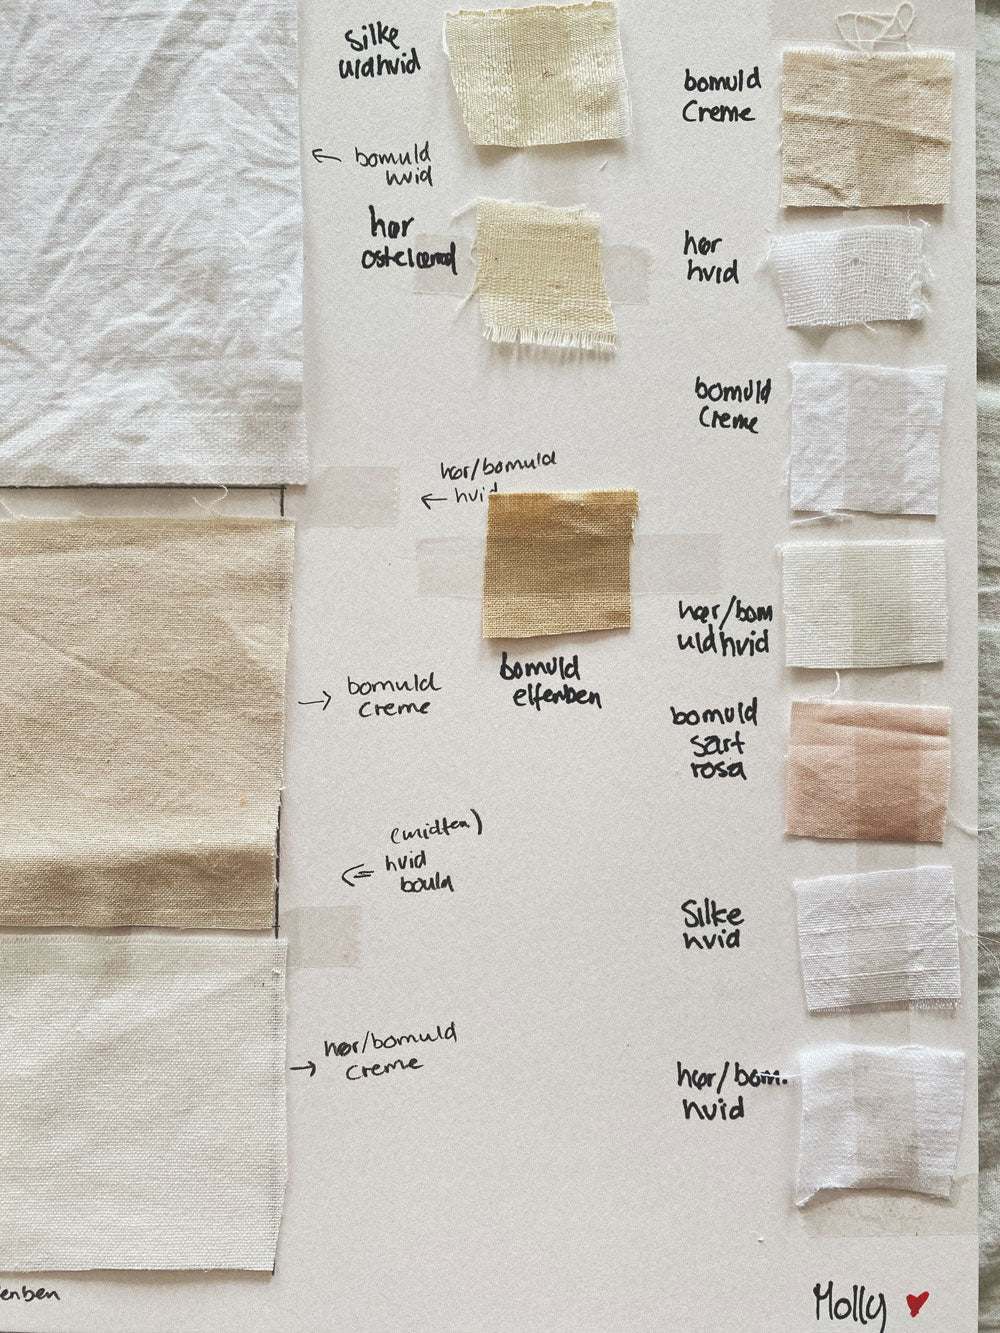 silke
uldhvid
← bomuld
hvid
hør
ostelærred
← hør/bomuld
hvid
bomuld
elfenben
→ bomuld
creme
(midten)
⇐ hvid
bould
→ hør/bomuld
creme
enben
bomuld
Creme
hør
hvid
bomuld
Creme
hør/bom
uldhvid
bomuld
sart
rosa
Silke
hvid
hør/bom.
hvid
Molly ♥